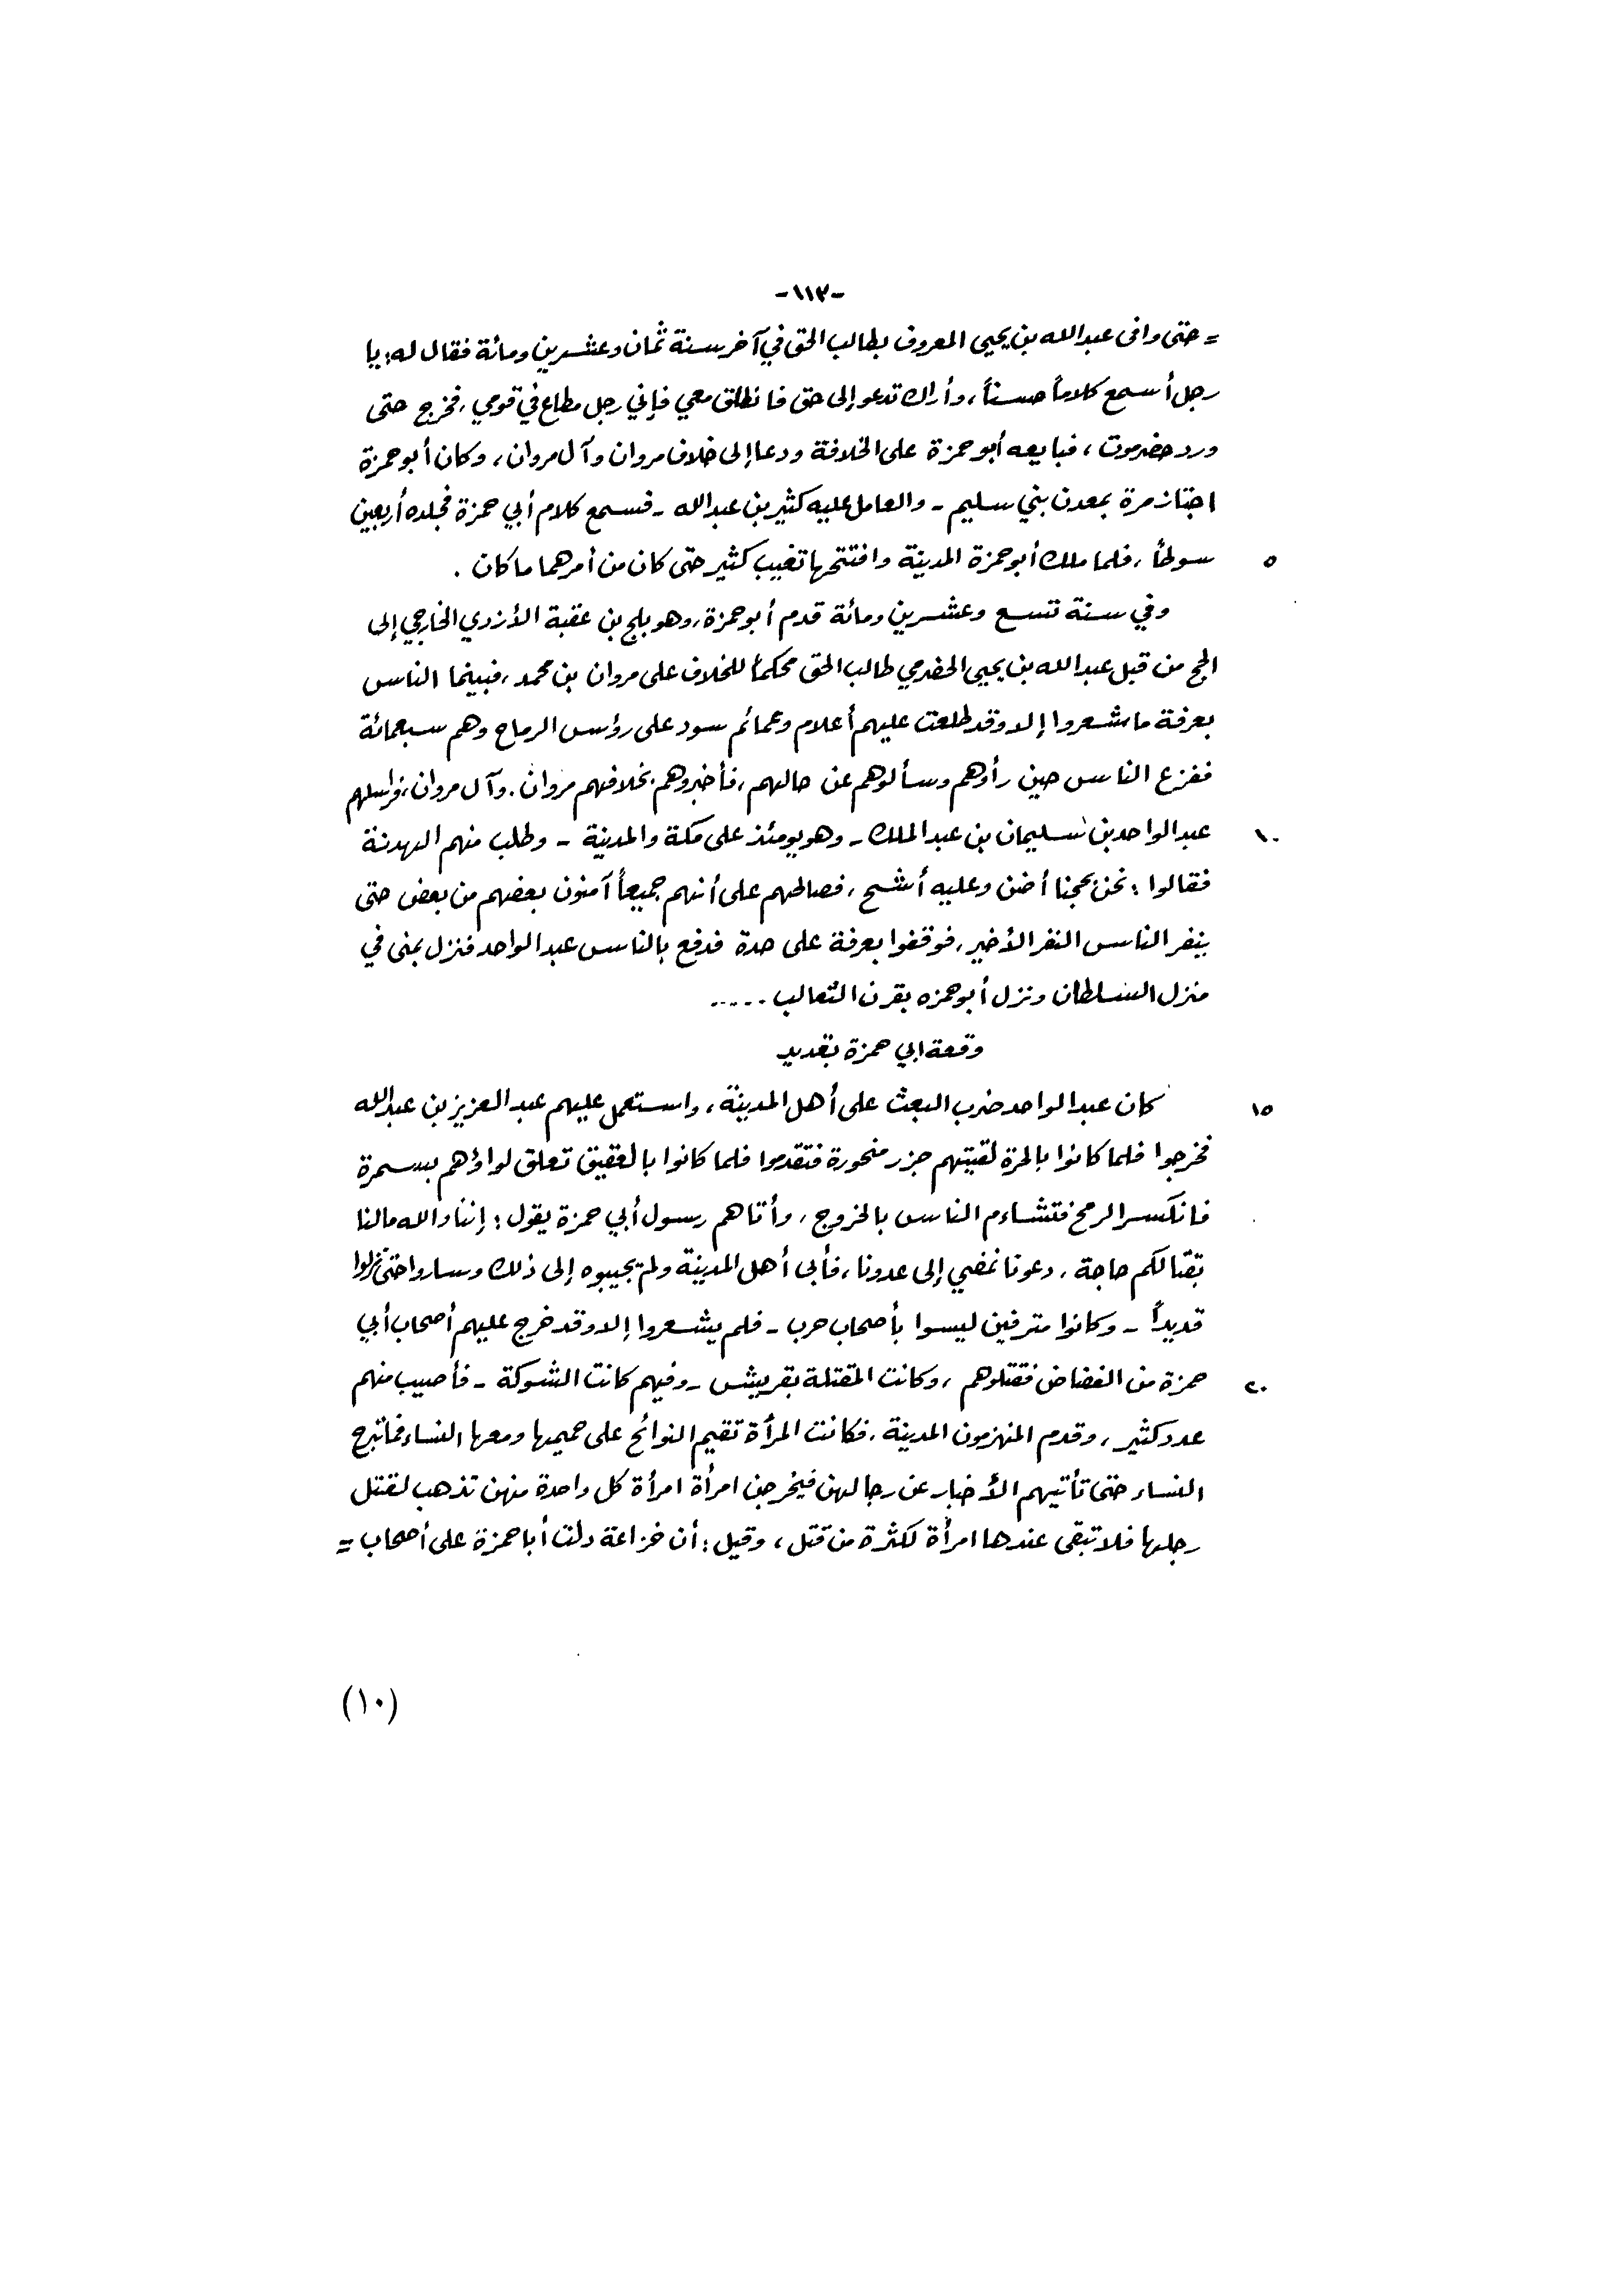 -١١٣-
= حتى وافى عبدالله بن يحيى المعروف بطالب الحق في آخر سنة ثمان وعشرين ومائة فقال له: يا
رجل أسمع كلاماً حسناً، وأراك تدعو إلى حق فانطلق معي فإني رجل مطاع في قومي، فخرج حتى
ورد حضرموت، فبايعه أبو حمزة على الخلافة ودعا إلى خلاف مروان وآل مروان، وكان أبو حمزة
اجتاز مرة بمعدن بني سليم - والعامل عليه كثير بن عبدالله - فسمع كلام أبي حمزة فجلده أربعين
٥ سوطاً، فلما ملك أبو حمزة المدينة وافتتحها تغيب كثير حتى كان من أمرهما ما كان .
وفي سنة تسع وعشرين ومائة قدم أبو حمزة، وهو بلج بن عقبة الأزدي الخارجي إلى
الحج من قبل عبدالله بن يحيى الحضرمي طالب الحق محكماً للخلاف على مروان بن محمد، فبينما الناس
بعرفة ما شعروا إلا وقد طلعت عليهم أعلام وعمائم سود على رؤس الرماح وهم سبعمائة
ففزع الناس حين رأوهم وسألوهم عن حالهم، فأخبروهم بخلافهم مروان. وآل مروان، فراسلهم
١٠ عبدالواحد بن سليمان بن عبدالملك - وهو يومئذ على مكة والمدينة - وطلب منهم الهدنة
فقالوا: نحن بحجنا أضن وعليه أشح، فصالحهم على أنهم جميعاً آمنون بعضهم من بعض حتى
ينفر الناس النفر الأخير، فوقفوا بعرفة على حدة فدفع بالناس عبدالواحد فنزل بمنى في
منزل السلطان ونزل أبو حمزه بقرن الثعالب .....
وقعة ابي حمزة بقديد
١٥ كان عبدالواحد ضرب البعث على أهل المدينة، واستعمل عليهم عبدالعزيز بن عبدالله
فخرجوا فلما كانوا بالحرة لقيتهم جزر منحورة فتقدموا فلما كانوا بالعقيق تعلق لواؤهم بسمرة
فانكسر الرمح فتشاءم الناس بالخروج، وأتاهم رسول أبي حمزة يقول: إننا والله مالنا
بقتالكم حاجة، دعونا نمضي إلى عدونا، فأبى أهل المدينة ولم يجيبوه إلى ذلك وساروا حتى نزلوا
قديداً - وكانوا مترفين ليسوا بأصحاب حرب - فلم يشعروا إلا وقد خرج عليهم أصحاب أبي
٢٠ حمزة من الغضاض فقتلوهم، وكانت المقتلة بقريش - وفيهم كانت الشوكة - فأصيب منهم
عدد كثير، وقدم المنهزمون المدينة، فكانت المرأة تقيم النوائح على حميمها ومعها النساء فما تبرح
النساء حتى تأتيهم الأخبار عن رجالهن فيخرجن امرأة امرأة كل واحدة منهن تذهب لقتل
رجلها فلا تبقى عندها امرأة لكثرة من قتل، وقيل: أن خزاعة دلت أبا حمزة على أصحاب =
(١٠)